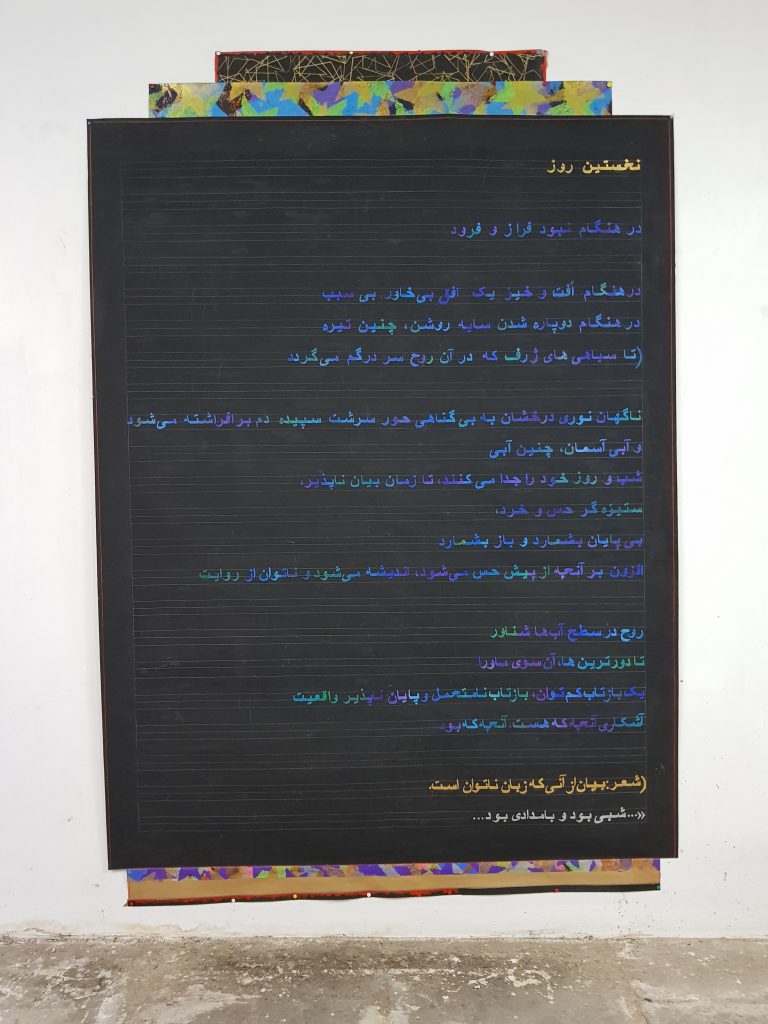 نخستین روز
در هنگام نبود فراز و فرود
در هنگام اُفت و خیز یک افق بی‌خاور، بی سبب
در هنگام دوپاره شدن سایه روشن، چنین تیره
(تا سیاهی های ژرف که در آن روح سر درگم می‌گردد
ناگهان نوری درخشان به بی‌گناهی حور سرشت سپیده دم برافراشته می‌شود
و آبی آسمان، چنین آبی
شب و روز خود را جدا می‌کنند، تا زمان بیان ناپذیر،
ستیزه گر حس و خرد،
بی پایان بشمارد و باز بشمارد
افزون بر آنچه از پیش حس می‌شود، اندیشه می‌شود و ناتوان از روایت
روح در سطح آب‌ها شناور
تا دورترین ها، آن سوی ماورا
یک بازتاب کم توان، بازتاب نامتحمل و پایان ناپذیر واقعیت
آشکاری آنچه که هست، آنچه که بود
(شعر: بیان از آنی که زبان ناتوان است.
«...شبی بود و بامدادی بود...